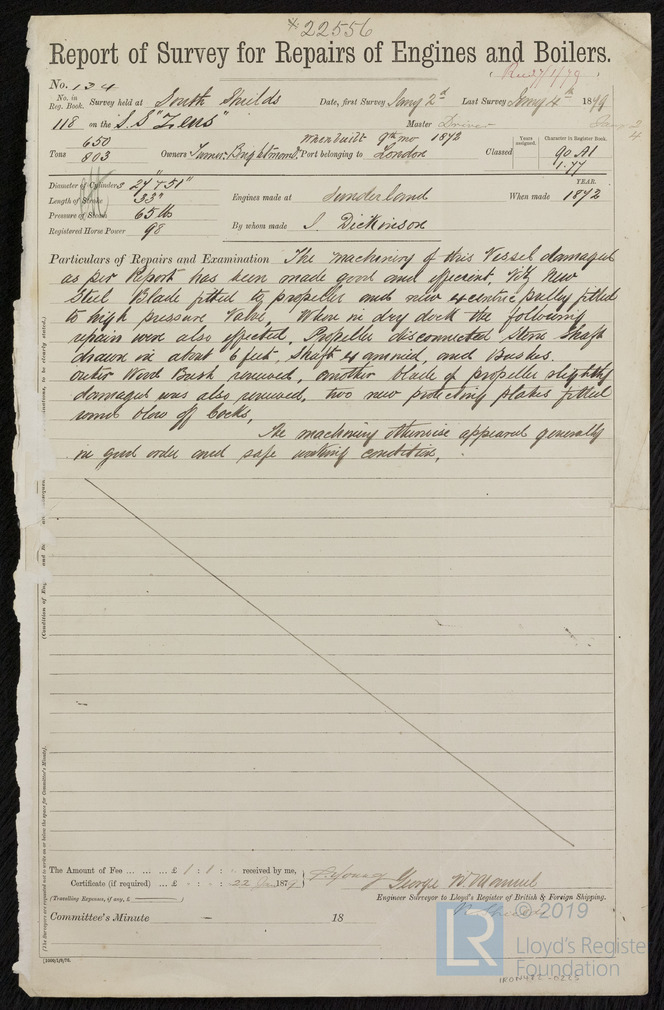 *22556
Report of Survey for Repairs of Engines and Boilers.
Rec 27/1/79
No. 134
No. in Reg. Book. Survey held at South Shields Date, first Survey Jany 2d Last Survey Jany 4th 1879
118 on the S.S "Zeus" Master Driver
Tons 650 803 When built 9th mo 1872
Owners Turner Brightman Port belonging to London Classed Years assigned. Character in Register Book. 90 A1 1.77
Diameter of Cylinders 27" + 51"
Length of Stroke 33"
Pressure of Steam 65 lb
Registered Horse Power 98
Engines made at Sunderland When made YEAR. 1872
By whom made J. Dickinson
Particulars of Repairs and Examination The machinery of this Vessel damaged
as per Report has been made good and efficient. Viz, New
Steel Blade fitted to propeller and new eccentric pulley fitted
to high pressure Valve, When in dry dock the following
repairs were also effected, Propeller disconnected Stern Shaft
drawn in about 6 feet, Shaft examined, and Bushes.
Outer Wood Bush renewed, another blade of propeller slightly
damaged was also renewed, two new protecting plates fitted
round blow off Cocks,
The machinery otherwise appeared generally
in good order and safe working condition.
The Amount of Fee ... ... ... £ 1 : 1 : received by me,
Certificate (if required) ... £ : : 22 Jan 1879
(Travelling Expenses, if any, £ )
George W. Manuel
Engineer Surveyor to Lloyd's Register of British & Foreign Shipping.
N. Shields
Committee's Minute 18
LR © 2019
Lloyd's Register
Foundation
IRON472-0225